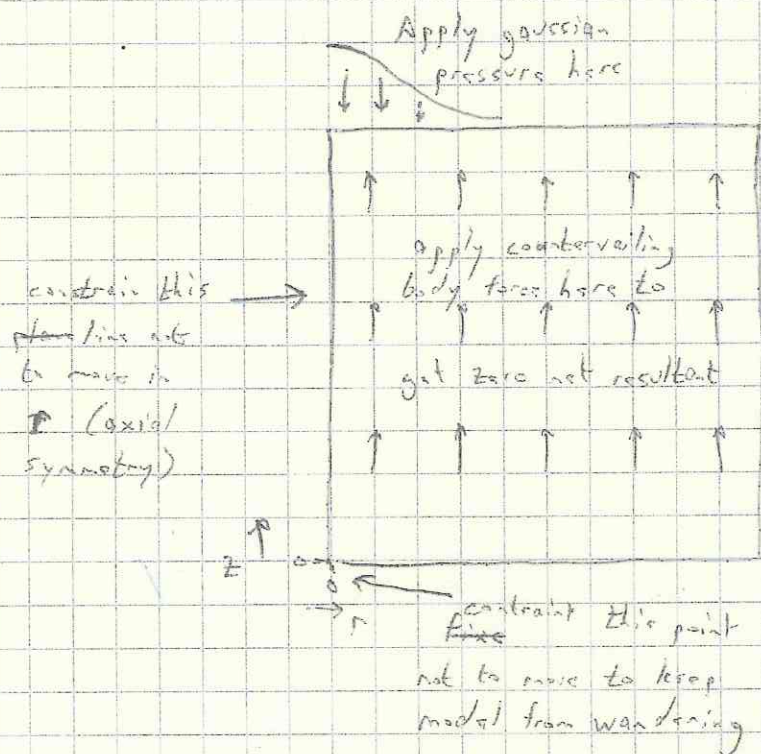 Apply gaussian
pressure here
apply countervailing
body force here to
get zero net resultant
constrain this
plane line not
to move in
r (axial
symmetry)
z
0
0
r
fixe constraint this point
not to move to keep
model from wandering